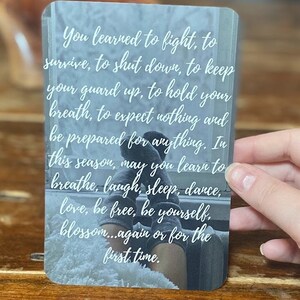 You learned to fight, to
survive, to shut down, to keep
your guard up, to hold your
breath, to expect nothing and
be prepared for anything. In
this season, may you learn to
breathe, laugh, sleep, dance,
love, be free, be yourself,
blossom...again or for the
first time.